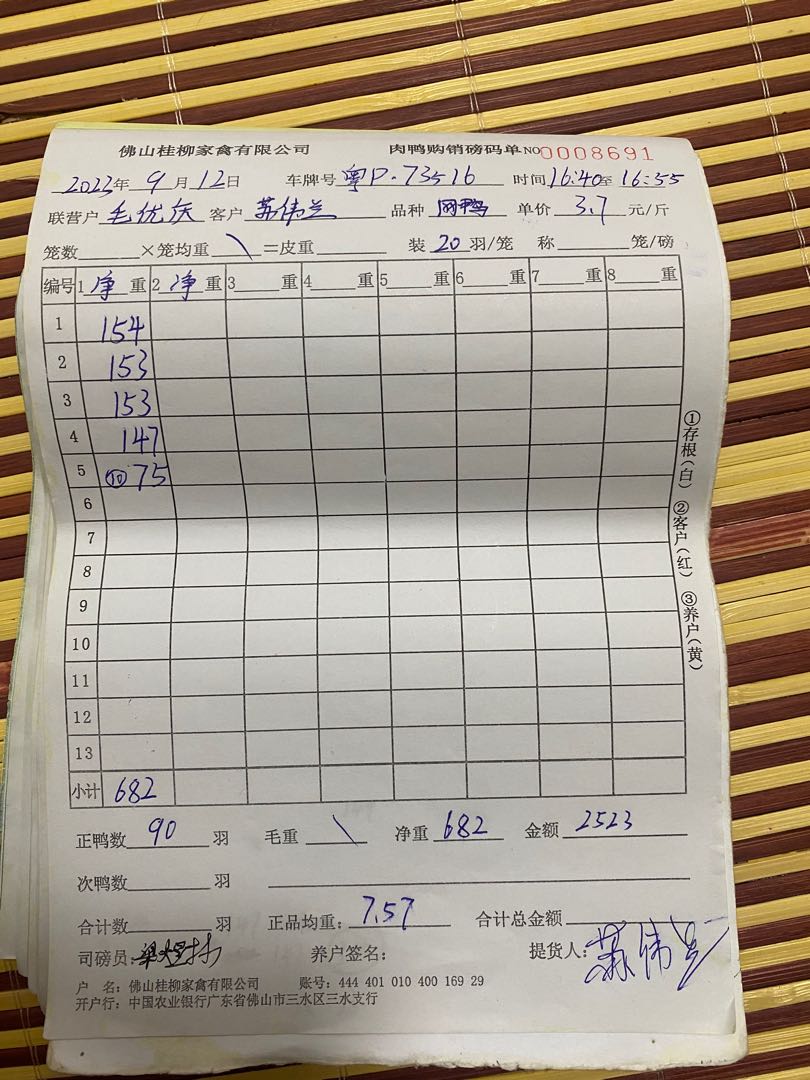 佛山桂柳家禽有限公司 肉鸭购销磅码单 NO0008691
2023年 9月12日 车牌号 粤P·73516 时间16:40至16:55
联营户 毛优庆 客户 苏伟兰 品种 网鸭 单价 3.7 元/斤
笼数 ×笼均重 \ =皮重 装 20 羽/笼 称 笼/磅
编号 1 净 重 2 净 重 3 重 4 重 5 重 6 重 7 重 8 重
1 154
2 153
3 153
4 147
5 ⑩ 75
6
7
8
9
10
11
12
13
小计 682
①存根(白) ②客户(红) ③养户(黄)
正鸭数 90 羽 毛重 \ 净重 682 金额 2523
次鸭数 羽
合计数 羽 正品均重: 7.57 合计总金额
司磅员: 养户签名: 提货人: 苏伟兰
户 名: 佛山桂柳家禽有限公司 账号: 444 401 010 400 169 29
开户行: 中国农业银行广东省佛山市三水区三水支行